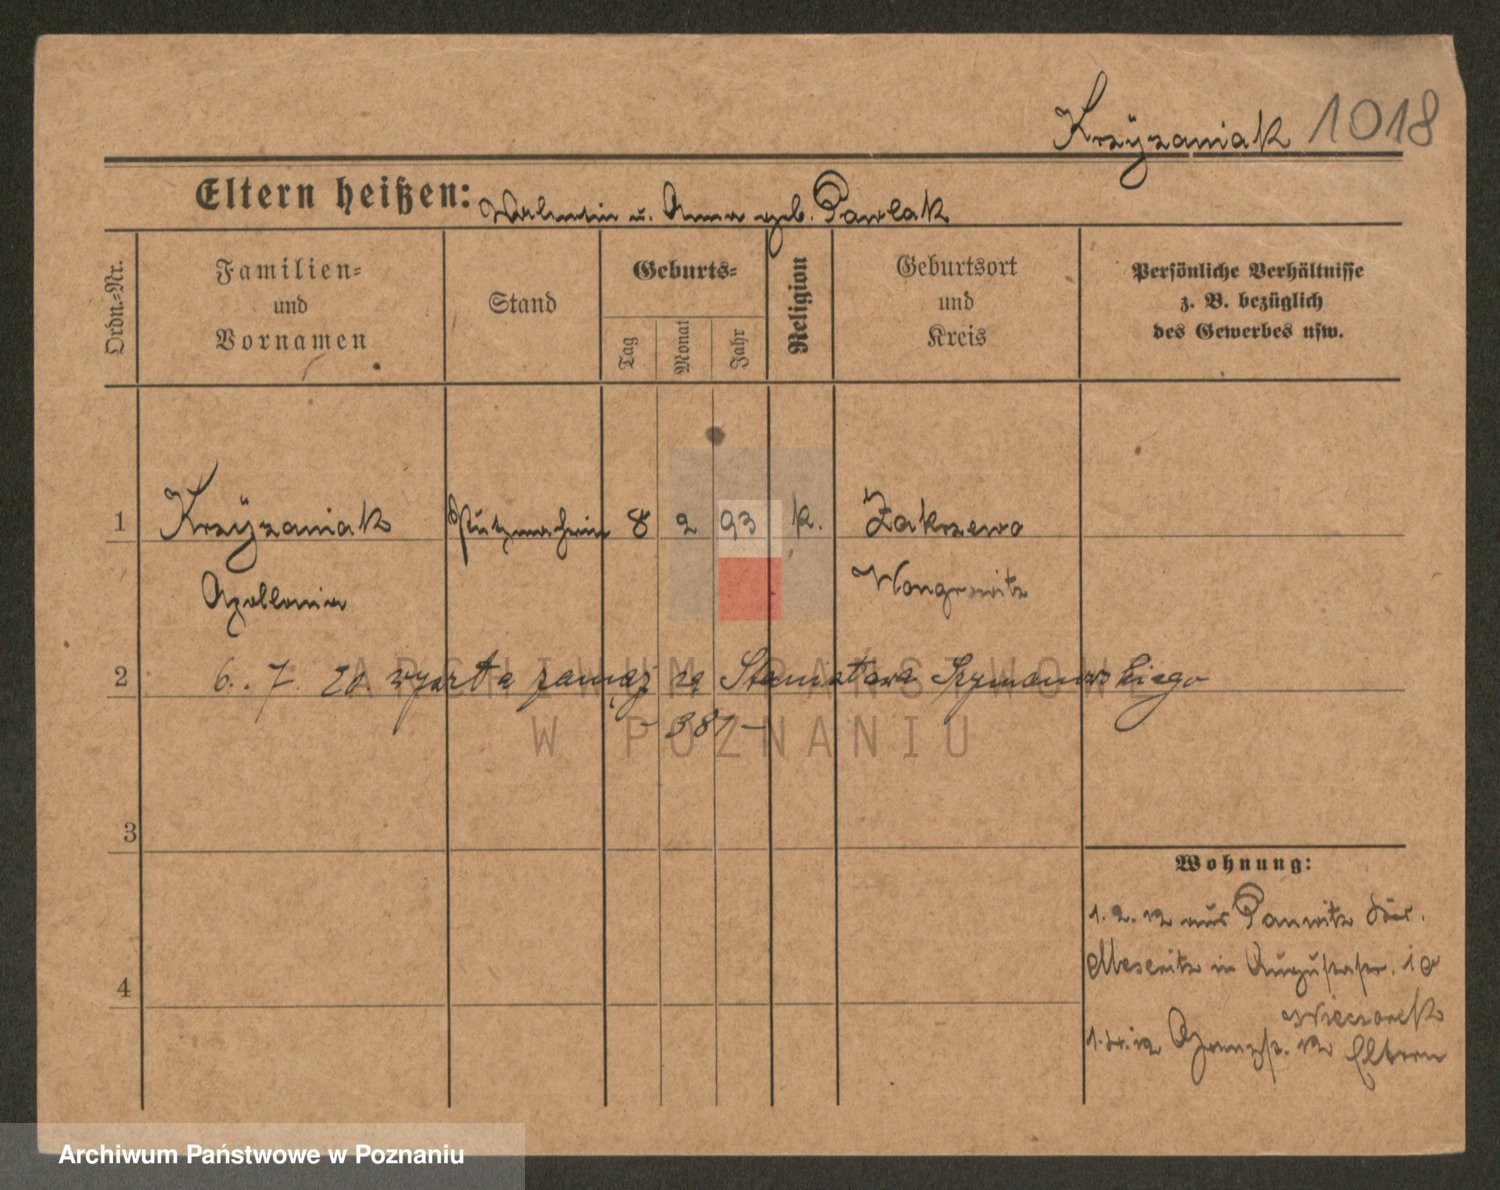 Krzÿzaniak 1018
Eltern heißen: Valentin u. Anna geb. Pawlak
Ordn.-Nr.
Familien- und Vornamen
Stand
Geburts-
Tag
Monat
Jahr
Religion
Geburtsort und Kreis
Persönliche Verhältnisse z. B. bezüglich des Gewerbes usw.
1 Krzÿzaniak Putzmacherin 8 2 93 k. Zakrzewo
Apollonia Wongrowitz
2 6. 7. 20. wyszła zamąż za Stanisława Szymanowskiego
- 387 -
3
Wohnung:
1. 2. 12 aus Panwitz
Meseritz in Augustastr.
Wieczorek
4
Eltern
ARCHIWUM PAŃSTWOWE
W POZNANIU
Archiwum Państwowe w Poznaniu